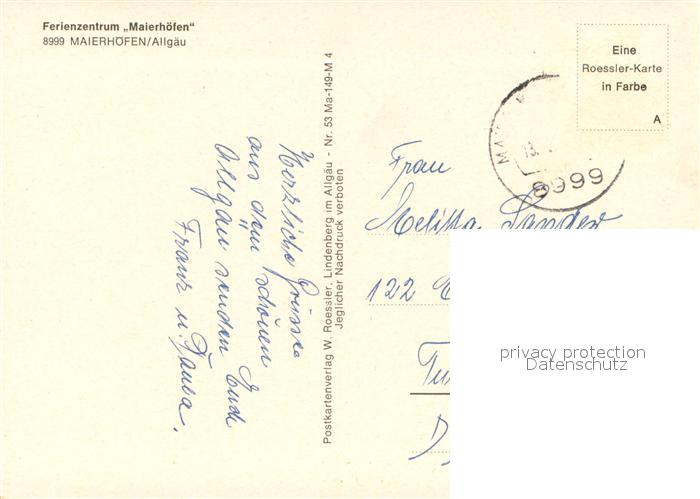 Ferienzentrum „Maierhöfen"
8999 MAIERHÖFEN/Allgäu
Herzliche Grüsse
aus dem schönen
Allgäu senden Euch
Franz u.
Postkartenverlag W. Roessler, Lindenberg im Allgäu - Nr. 53 Ma-149-M 4
Jeglicher Nachdruck verboten
Eine
Roessler-Karte
in Farbe
A
8999
Frau
Melitta Sander
122
privacy protection
Datenschutz